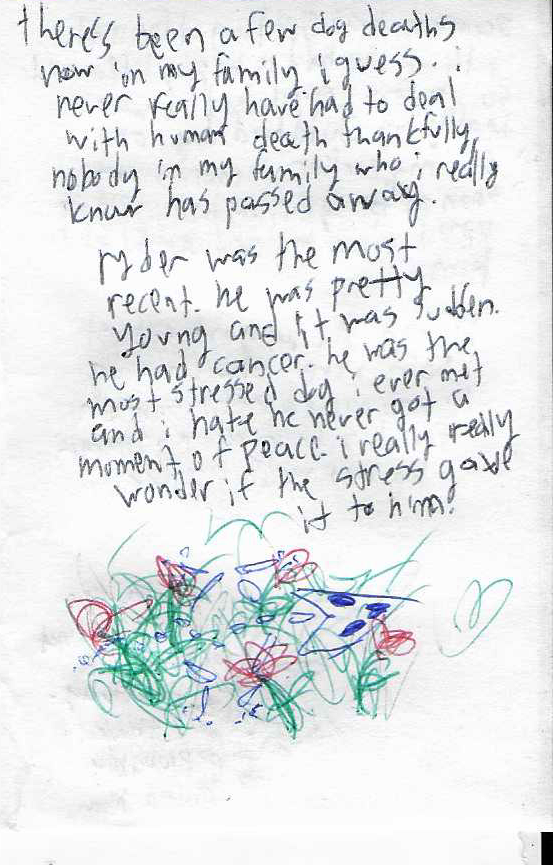 there's been a few dog deaths
now in my family i guess. i
never really have had to deal
with human death thankfully,
nobody in my family who i really
know has passed away.
ryder was the most
recent. he was pretty
young and it was sudden.
he had cancer. he was the
most stressed dog i ever met
and i hate he never got a
moment of peace. i really really
wonder if the stress gave
it to him.